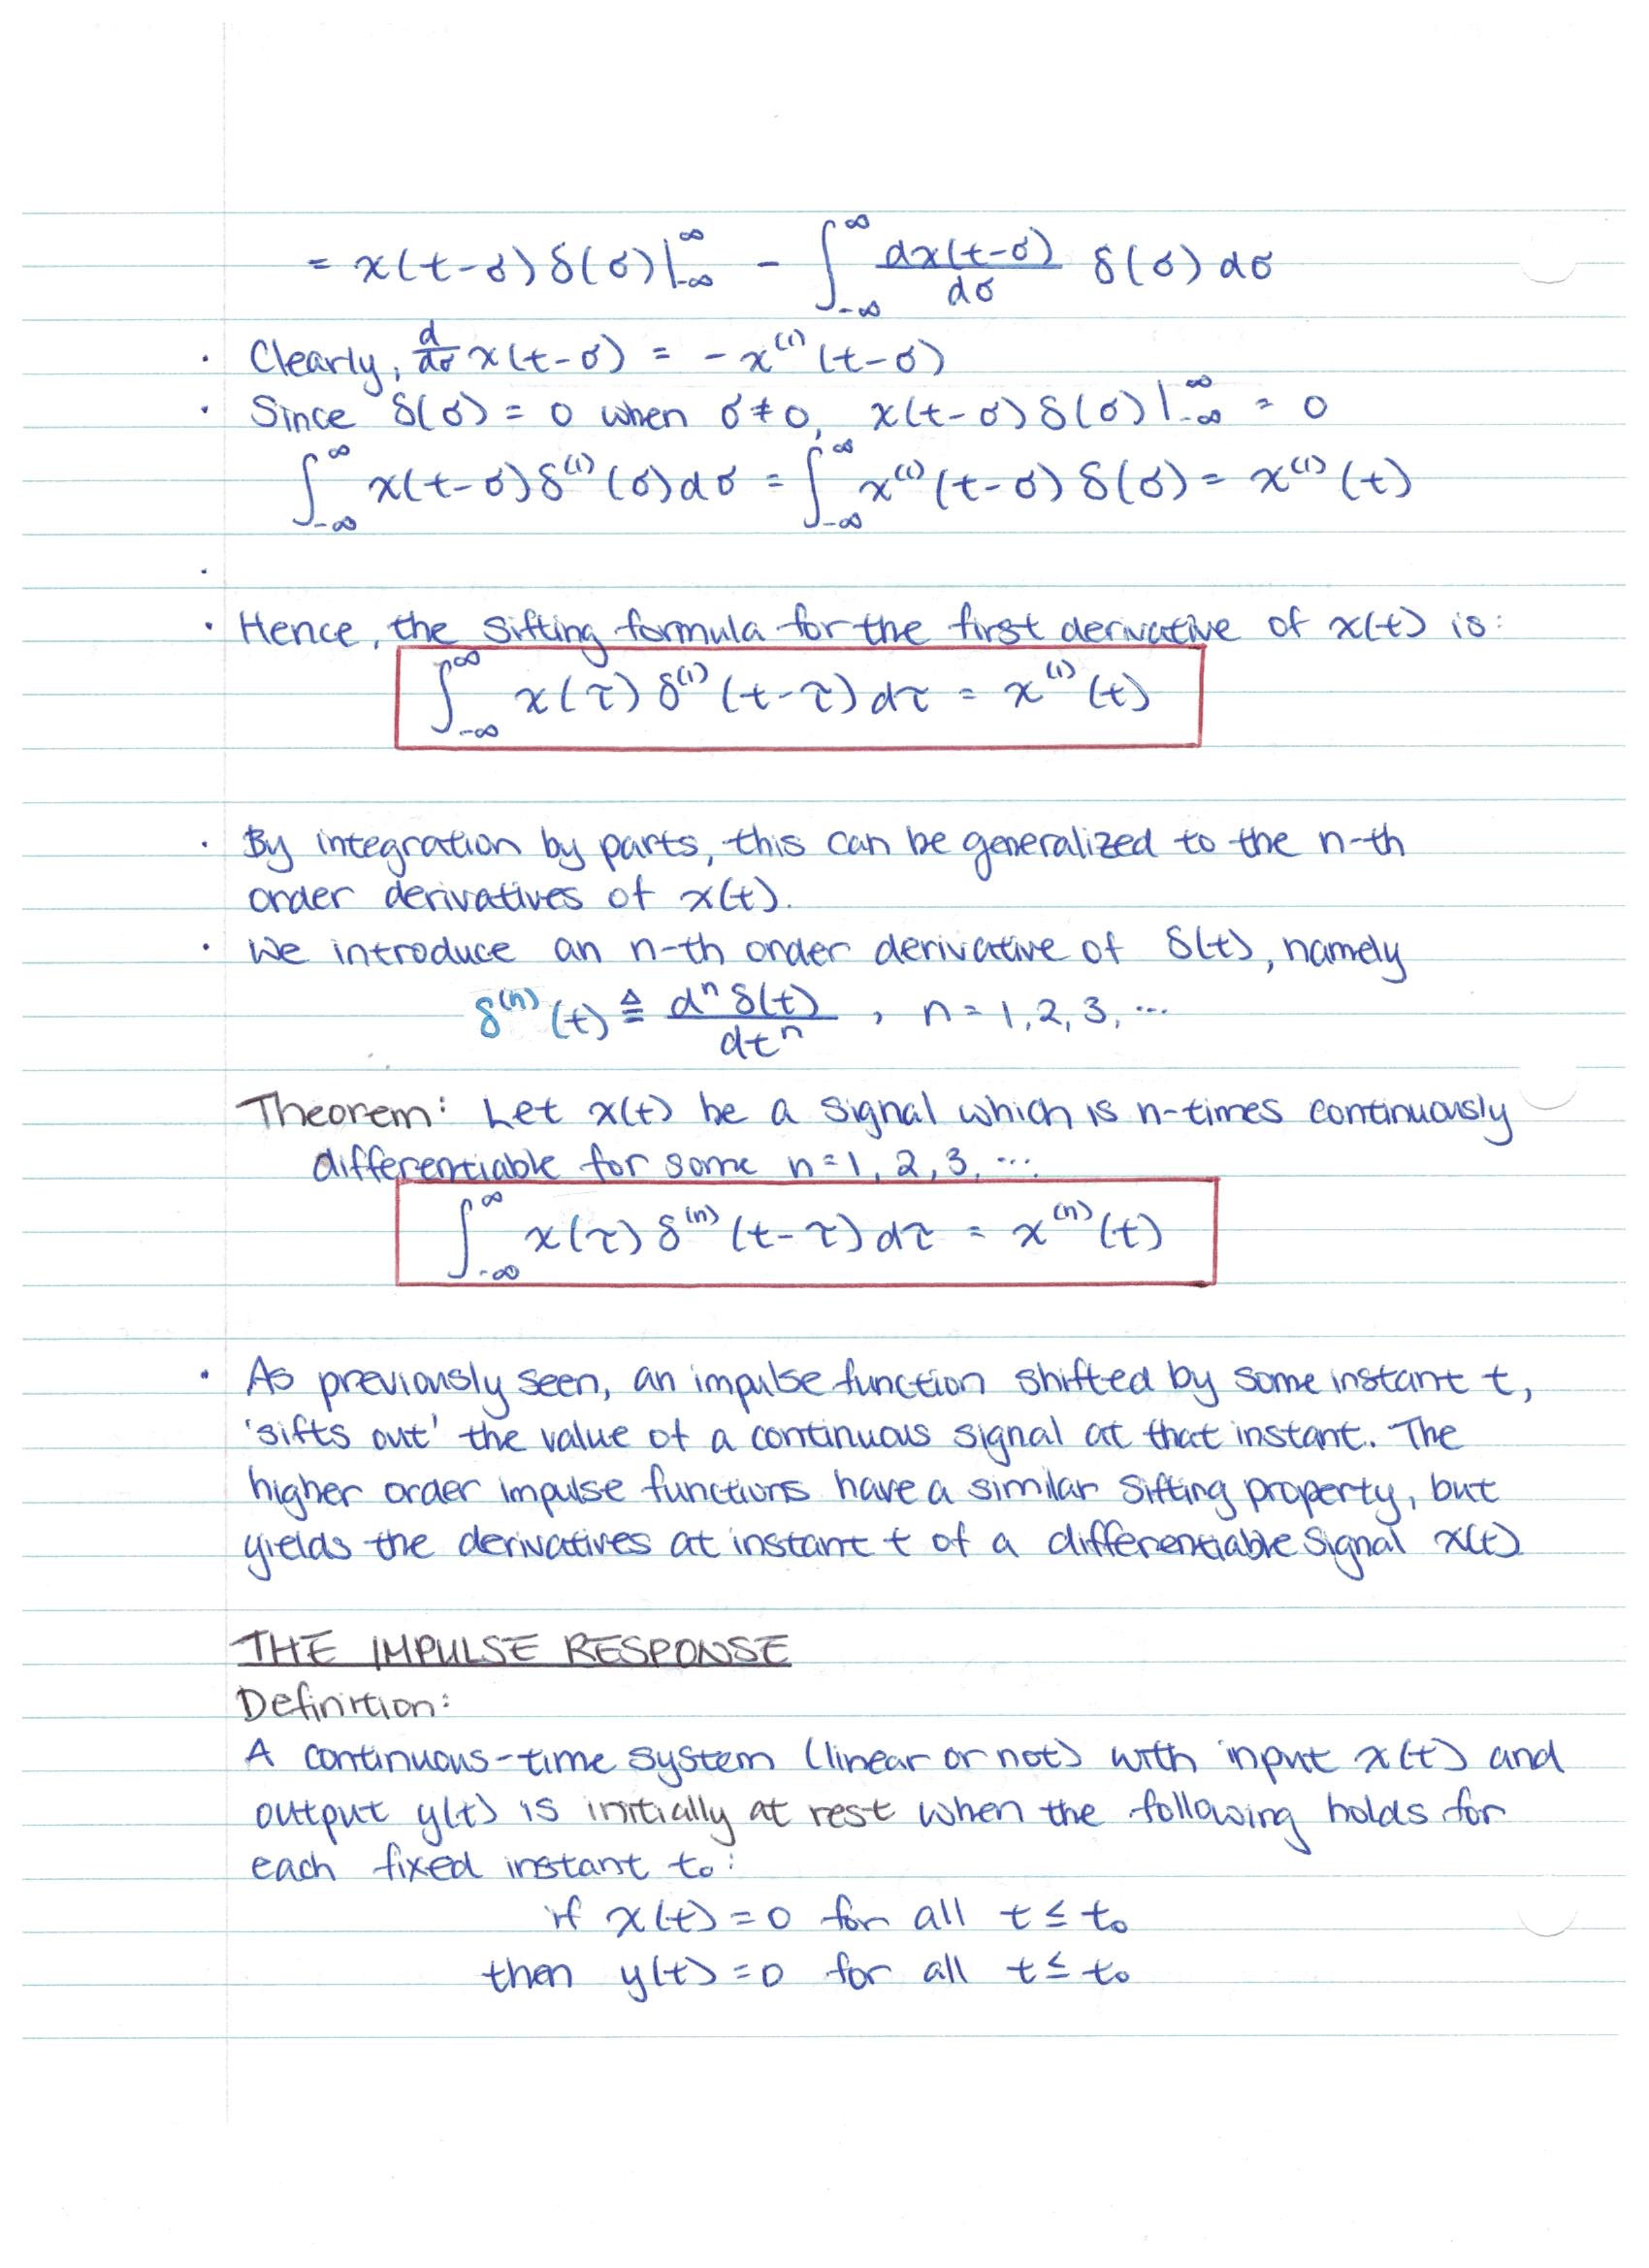 = x(t-σ) δ(σ)|_{-∞}^{∞} - ∫_{-∞}^{∞} dx(t-σ)/dσ δ(σ) dσ
· Clearly, d/dσ x(t-σ) = - x^{(1)}(t-σ)
· Since δ(σ) = 0 when σ ≠ 0, x(t-σ) δ(σ)|_{-∞}^{∞} = 0
∫_{-∞}^{∞} x(t-σ) δ^{(1)}(σ) dσ = ∫_{-∞}^{∞} x^{(1)}(t-σ) δ(σ) = x^{(1)}(t)
·
· Hence, the sifting formula for the first derivative of x(t) is:
∫_{-∞}^{∞} x(τ) δ^{(1)}(t-τ) dτ = x^{(1)}(t)
· By integration by parts, this can be generalized to the n-th
order derivatives of x(t).
· We introduce an n-th order derivative of δ(t), namely
δ^{(n)}(t) ≜ d^n δ(t)/dt^n , n = 1, 2, 3, ...
Theorem: Let x(t) be a signal which is n-times continuously
differentiable for some n = 1, 2, 3, ...
∫_{-∞}^{∞} x(τ) δ^{(n)}(t-τ) dτ = x^{(n)}(t)
· As previously seen, an impulse function shifted by some instant t,
'sifts out' the value of a continuous signal at that instant. The
higher order impulse functions have a similar sifting property, but
yields the derivatives at instant t of a differentiable signal x(t)
THE IMPULSE RESPONSE
Definition:
A continuous-time system (linear or not) with input x(t) and
output y(t) is initially at rest when the following holds for
each fixed instant t₀:
if x(t) = 0 for all t ≤ t₀
then y(t) = 0 for all t ≤ t₀